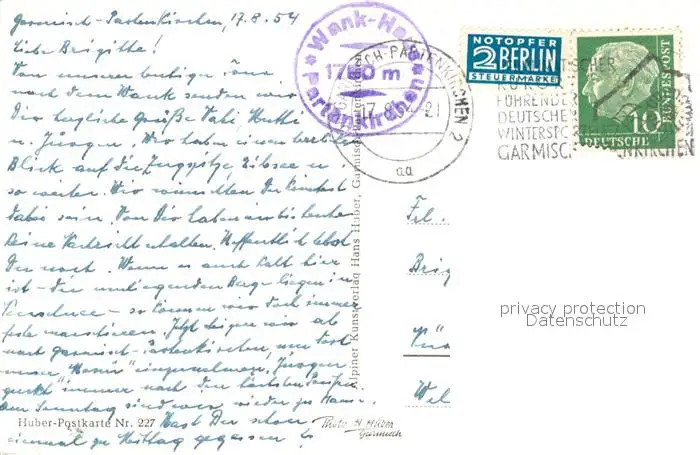 Garmisch-Partenkirchen, 17.8.54
Liebe Brigitte!
Von unserer heutigen Tour
nach dem Wank senden wir
Dir herzliche Grüße Vati Mutti
u. Jürgen. Wir haben einen herrlichen
Blick auf die Zugspitze Eibsee u.
so weiter. Wir wünschten Du könntest
dabei sein. Von Dir haben wir bis heute
keine Nachricht erhalten. Hoffentlich lebst
Du noch. Wenn es auch kalt hier
ist - die umliegenden Berge liegen im
- so können wir doch immer
feste marschieren. Jetzt steigen wir ab
nach Garmisch-Partenkirchen, um dort
unser "Menü" einzunehmen. Jürgen
guckt immer nach den
Am Sonntag sind wir wieder zu Hause.
Hast Du schon
einmal zu Mittag gegessen?
Huber-Postkarte Nr. 227
Photo H. Huber
Garmisch
Alpiner Kunstverlag Hans Huber, Garmisch-Partenkirchen
Wank-Haus
1780 m
Partenkirchen
GARMISCH-PARTENKIRCHEN 2
aa
NOTOPFER
2 BERLIN
STEUERMARKE
FÜHRENDER
DEUTSCHER
WINTERSPORT
GARMISCH-PARTENKIRCHEN
10
DEUTSCHE
BUNDESPOST
Frl.
Brig
Wel
privacy protection
Datenschutz